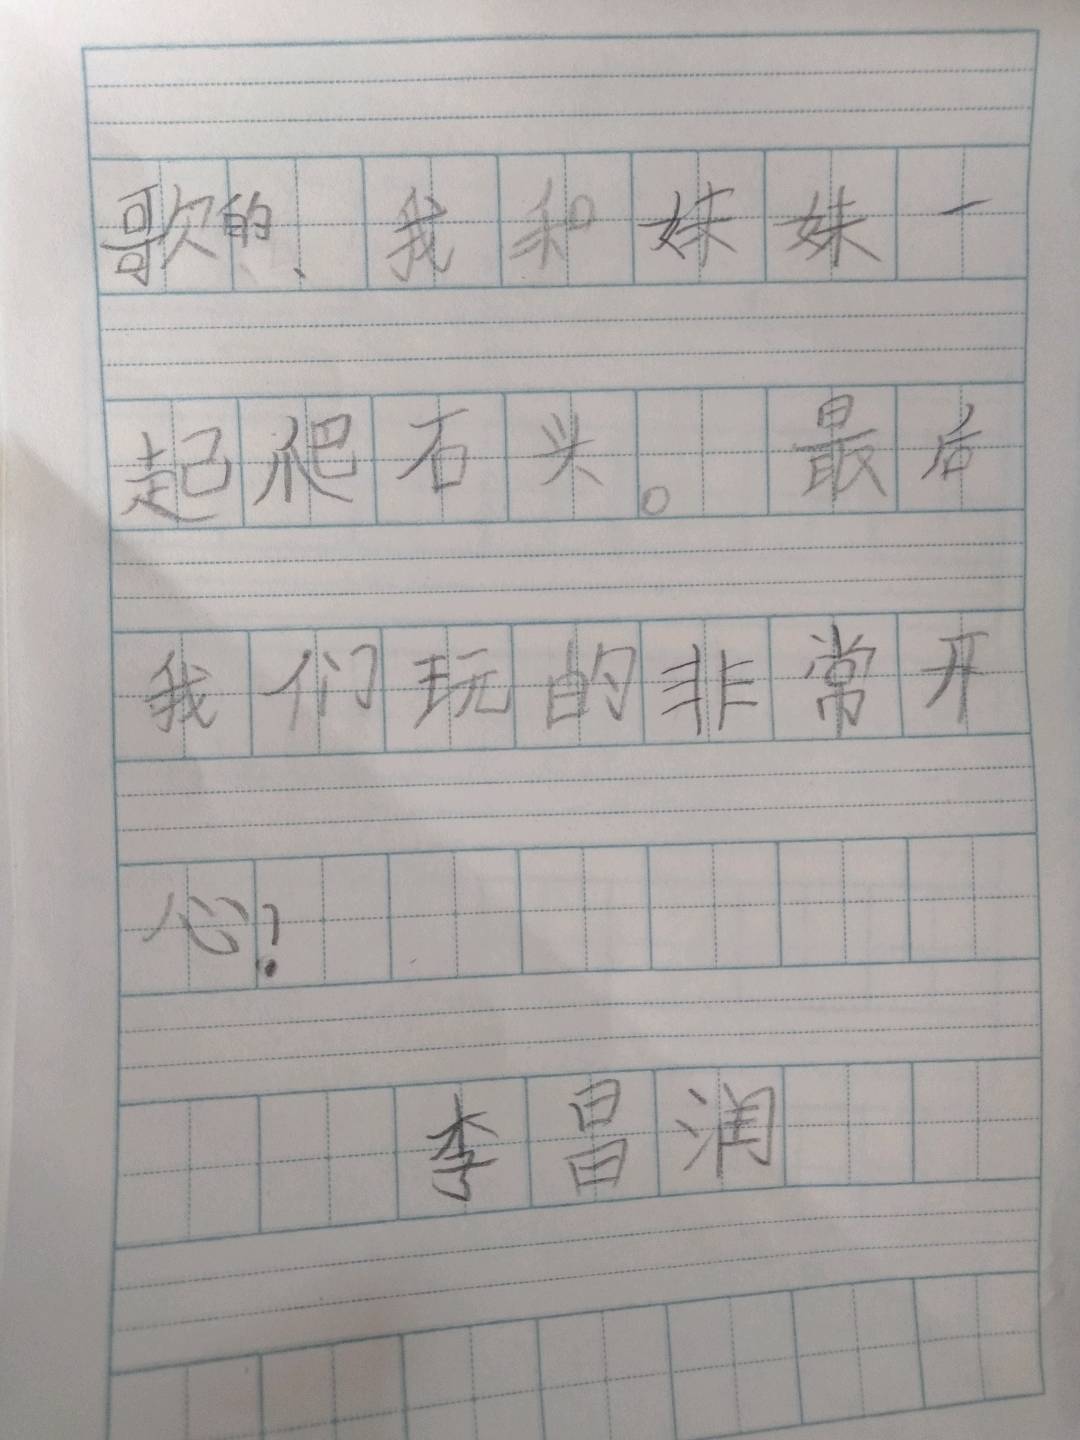 歌的、我和妹妹一
起爬石头。最后
我们玩的非常开
心!
李昌润